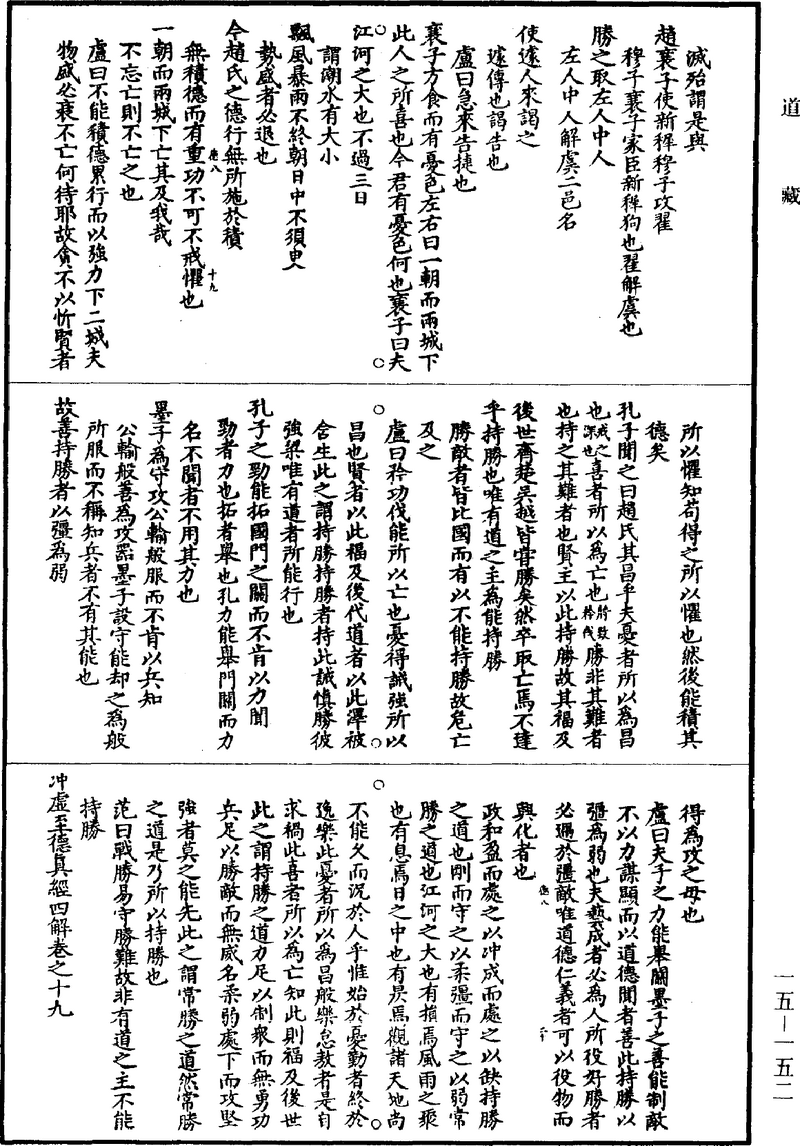 道藏
滅殆謂是與
趙襄子使新穉穆子攻翟
穆子襄子家臣新穉狗也翟鮮虞也
勝之取左人中人
左人中人鮮虞二邑名
使遽人來謁之
遽傳也謁告也
盧曰急來告捷也
襄子方食而有憂色左右曰一朝而兩城下
此人之所喜也今君有憂色何也襄子曰夫
江河之大也不過三日
謂潮水有大小
飄風暴雨不終朝日中不須臾
勢盛者必退也
今趙氏之德行無所施於積
無積德而有重功不可不戒懼也
一朝而兩城下亡其及我哉
不忘亡則不亡之也
盧曰不能積德累行而以強力下二城夫
物盛必衰不亡何待耶故貪不以忻賢者
所以懼知苟得之所以懼也然後能積其
德矣
孔子聞之曰趙氏其昌乎夫憂者所以為昌
也戒之深也喜者所以為亡也將致矜伐勝非其難者
也持之其難者也賢主以此持勝故其福及
後世齊楚吳越皆嘗勝矣然卒取亡焉不達
乎持勝也唯有道之主為能持勝
勝敵者皆比國而有以不能持勝故危亡
及之
盧曰矜功伐能所以亡也憂得誡強所以
昌也賢者以此福及後代道者以此澤被
含生此之謂持勝持勝者持此誡慎勝彼
強梁唯有道者所能行也
孔子之勁能拓國門之關而不肯以力聞
勁者力也拓者舉也孔力能舉門關而力
名不聞者不用其力也
墨子為守攻公輸般服而不肯以兵知
公輸般善為攻器墨子設守能却之為般
所服而不稱知兵者不有其能也
故善持勝者以彊為弱
得為攻之母也
盧曰夫子之力能舉關墨子之善能制敵
不以力謀顯而以道德聞者善此持勝以
彊為弱也夫藝成者必為人所役好勝者
必遇於彊敵唯道德仁義者可以役物而
與化者也
政和盈而處之以冲成而處之以缺持勝
之道也剛而守之以柔彊而守之以弱常
勝之道也江河之大也有損焉風雨之聚
也有息焉日之中也有昃焉觀諸天地尚
不能久而況於人乎惟始於憂勤者終於
逸樂此憂者所以為昌般樂怠敖者是自
求禍此喜者所以為亡知此則福及後世
此之謂持勝之道力足以制衆而無勇功
兵足以勝敵而無威名柔弱處下而攻堅
強者莫之能先此之謂常勝之道然常勝
之道是乃所以持勝也
范曰戰勝易守勝難故非有道之主不能
持勝
冲虛至德真經四解卷之十九
一五—一五二